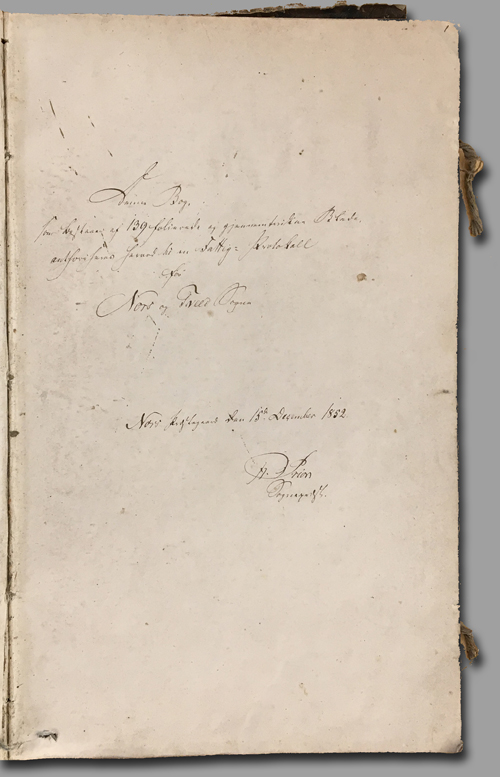 Denne Bog,
som bestaaer af 139 folierede og gjennemtrukne Blade,
authoriseres herved til en Fattig-Protokoll
for
Nors og Tved Sogne
Nors Præstegaard den 15de December 1852
Sognepræst.